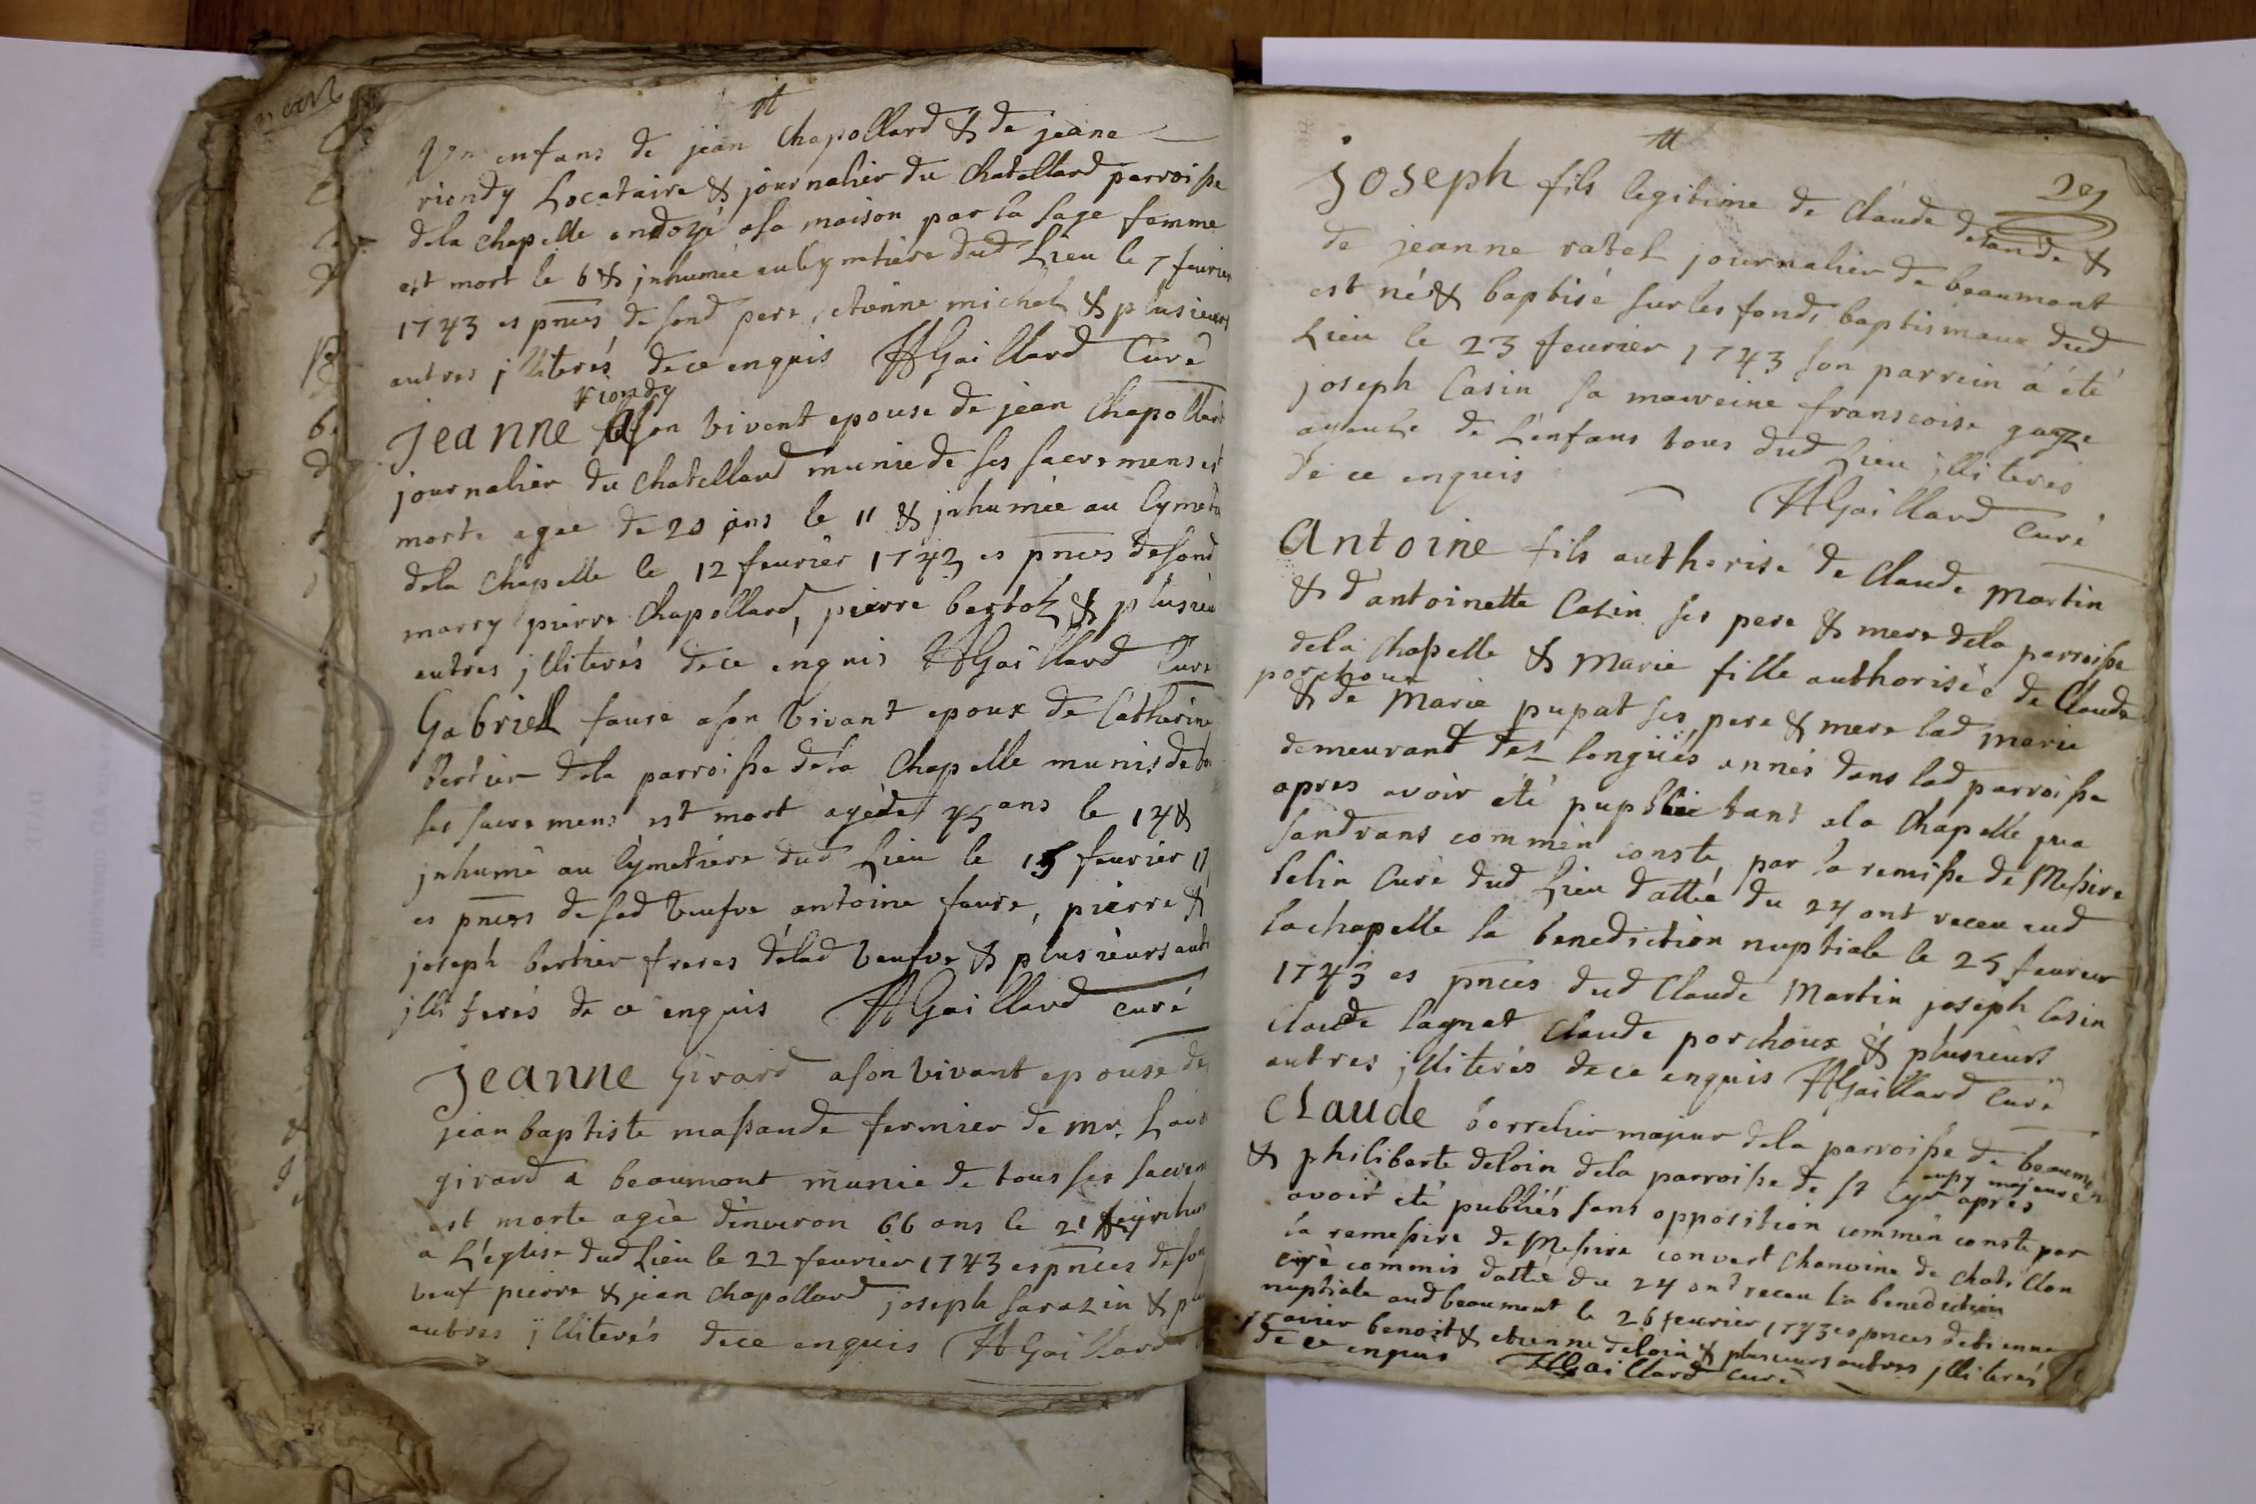 Un enfans de jean Chapollard & de jeane
riondy Locataire & journalier du Chatellard parroisse
dela chapelle endoyé asa maison par la sage femme
est mort le 6 & jnhumée au Cymtiere dud Lieu le 7 feurier
1743 es pnces de sond pere, etienne michel & plusieurs
autres jlliterés de ce enquis HGaillard Curé
riondy
Jeanne a son vivant epouse de jean Chapollard
journalier du Chatellard munie de ses sacremens est
morte agee de 20 ans le 11 & jnhumée au Cymet
dela Chapelle le 12 feurier 1743 es pnces desond
marry pierre Chapollard, pierre bertol & plusieu
autres jlliterés dece enquis HGaillard Curé
Gabriel faure ason vivant epoux de Catherine
bertier dela parroisse dela Chapelle munis de
ses sacremens est mort agé de 45 ans le 14 &
jnhumé au Cymetiere dud Lieu le 15 feurier 17
es pnces de sad veufve antoine faure, pierre &
joseph bertier freres delad veufve & plusieurs aut
jlliterés de ce enquis HGaillard Curé
Jeanne Girard ason vivant epouse de
jean baptiste massande fermier de mr.
girard a beaumont munie de tous ses sacrem
est morte agée d'environ 66 ans le 21 & jnhum
a L'eglise dud Lieu le 22 feurier 1743 es pnces de son
veuf pierre & jean Chapollard joseph sarazin & plu
autres jlliterés de ce enquis HGaillard
joseph fils legitime de Claude delande &
de jeanne ratel journalier de beaumont
est né & baptisé sur les fonds baptismaux dud
Lieu le 23 feurier 1743 son parrein á été
joseph Casin sa marreine franscoise gaze
ayeule de L'enfans tous dud Lieu jlliterés
de ce enquis HGaillard Curé
Antoine fils authorisé de Claude Martin
& d'antoinette Casin ses pere & mere dela parroisse
dela Chapelle & Marie fille authorisée de Claude
porchoux
& de Marie pupat ses pere & mere lad marie
demeurant des longues annés dans lad parroisse
apres avoir été pupbliè tant ala Chapelle qua
sandrans commèn conste par la remisse de Messire
belin Curé dud Lieu datté du 24 ont receu aud
lachapelle la benediction nuptiale le 25 feurier
1743 es pnces dud Claude Martin joseph Casin
claude lagnat Claude porchoux & plusieurs
autres jlliterés dece enquis HGaillard Curé
Claude borrelier majeur dela parroisse de beaumon
& philiberte deloin dela parroisse de st Cyr apres
aussy majeure
avoir été publiés sans opposition commèn conste par
la remessire de Messire convert Chanoine de Chatillon
curé commis datté du 24 ont receu la benediction
nuptiale aud beaumont le 26 feurier 1743 es pnces detienne
benoit & etienne deloin & plusieurs autres jlliterés
de ce enquis HGaillard Curé